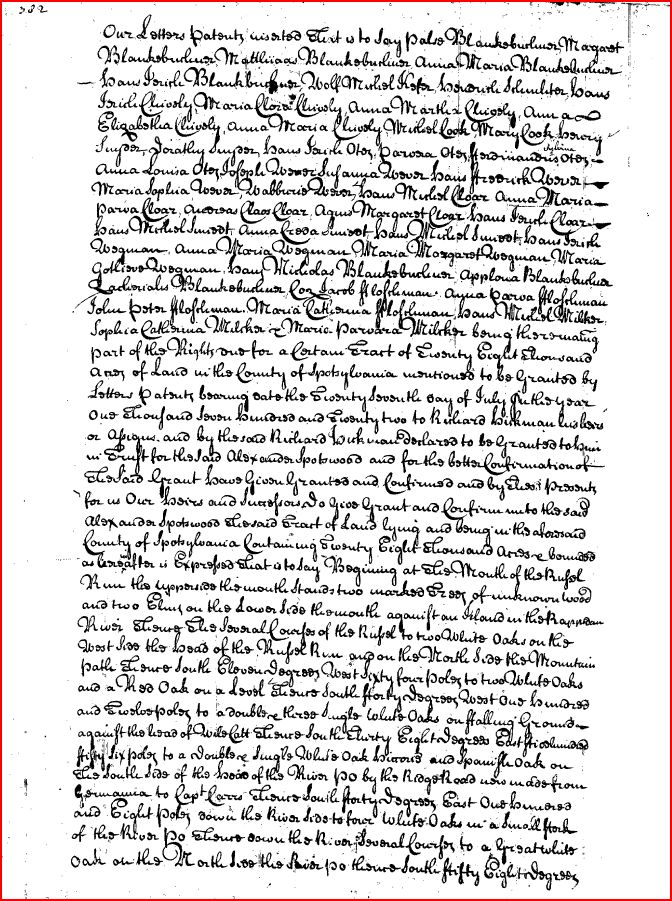 382
Our Letters Patents inserted That is to Say Palse Blankebuchner, Margaret
Blankebuchner, Matthias Blankebuchner Anna Maria Blankebuchner
Hans Jerich Blankbuchner, Wolf Michel Kefer, Henerich Schuchter, Hans
Jerich Chively, Maria Clora Chively, Anna Martha Chively, Anna
Elizabetha Chively, Anna Maria Chively Michel Cook, Mary Cook, Henry
Snyder, Dorathy Snyder, Hans Jerich Otes, Parvara Otes, Fferdinandus Sylvania Otes,
Anna Louisa Otes, Joseph Wever, Susanna Wever Hans Fredrick Wever
Maria Sophia Wever, Wabburie Wever, Hans Michel Cloar, Anna Maria
Parva Cloar, Andreas Claos Cloar, Agnes Margaret Cloar, Hans Jerich Cloar
Hans Michel Smiedt, Anna Creda Smiedt Hans Michel Smiedt, Hans Jerich
Wegman, Anna Maria Wegman, Maria Margaret Wegman, Maria
Gotlieve Wegman, Hans Nicholas Blankebuchner, Applona Blankebuchner
Zacherials Blankebuchner, Coz Jacob Floschman, Anna Parva Floschman
John Peter Floschman, Maria Catherina Floschman, Hans Michel Milker,
Sophia Catherina Milcker & Maria Parvara Milcker being the remaining
part of the Rights due for a Certain Tract of Twenty Eight Thousand
Acres of Land in the County of Spotsylvania mentioned to be Granted by
Letters Patents bearing date the Twenty Seventh day of July in the year
One Thousand Seven Hundred and Twenty two to Richard Hickman his heirs
or Assigns and by the said Richard Hickman declared to be Granted to him
in Trust for the said Alexander Spotswood and for the better Confirmation of
The Said Grant Have Given Granted and Confirmed and by These Presents
for us Our Heirs and Successors Do Give Grant and Confirm unto the said
Alexander Spotswood The said Tract of Land lying and being in the aforesaid
County of Spotsylvania Containing Twenty Eight Thousand Acres & bounded
as hereafter is Expressed That is to Say Beginning at The Mouth of the Russel
Run the upperside the mouth Stands two marked Trees of unknown wood
and two Elms on the Lower Side the mouth against an Island in the Rappidan
River Thence The Several Courses of the Russel to two White Oaks on the
West Side the Head of the Russel Run and on the North Side the Mountain
path Thence South Eleven degrees West Sixty four poles to two White Oaks
and a Red Oak on a Level Thence South fforty degrees West One hundred
and Twelve poles to a double & three Single White Oaks on ffalling Ground
against the head of Wild Catt Thence South Thirty Eight degrees East ffive hundred
ffifty Six poles to a double & Single White Oak Hiccory and Spanish Oak on
The South Side of the Head of the River po by the Ridge Road new made from
Germanna to Capt Carrs Thence South fforty degrees East One Hundred
and Eight poles down the River Side to four White Oaks in a Small ffork
of the River po Thence down the River Several Courses to a Great white
Oak on the North Side the River po thence South ffifty Eight degrees